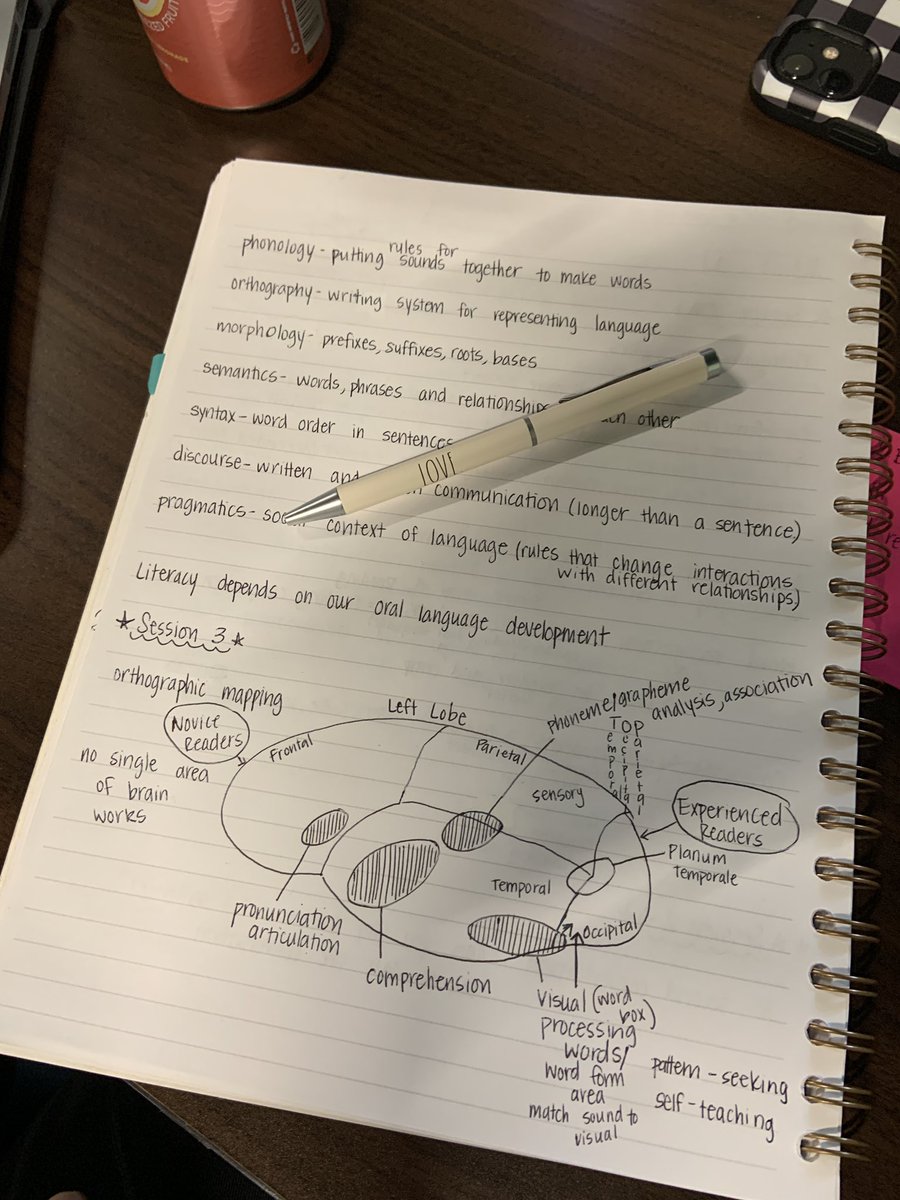 phonology - putting rules for sounds together to make words
orthography - writing system for representing language
morphology - prefixes, suffixes, roots, bases
semantics - words, phrases and other
syntax - word order in
discourse - written communication (longer than a sentence)
pragmatics - context of language (rules that change interactions
with different relationships)
Literacy depends on our oral language development
★ Session 3 ★
orthographic mapping
Novice
Readers
no single area
of brain
works
Left Lobe
Frontal
Parietal
phoneme/grapheme
analysis, association
TOP
Temporal
Occipital
Parietal
sensory
Experienced
Readers
Planum
Temporale
Temporal
Occipital
pronunciation
articulation
comprehension
Visual (word
box)
processing
words/
word form
area
match sound to
visual
pattern - seeking
self - teaching
LOVE